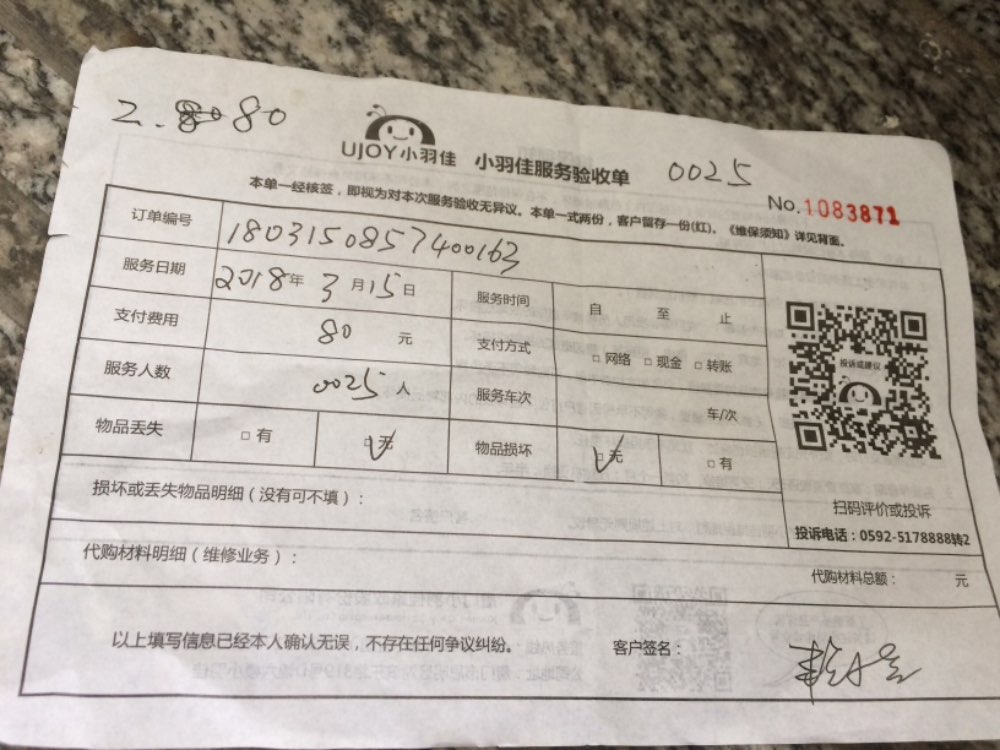 2. 80 80
UJOY小羽佳 小羽佳服务验收单 0025
No.1083871
本单一经核签，即视为对本次服务验收无异议。本单一式两份，客户留存一份(红)。《维保须知》详见背面。
订单编号 1803150857400163
服务日期 2018年 3 月 15 日 服务时间 自 至 止
支付费用 80 元 支付方式 □ 网络 □ 现金 □ 转账
服务人数 0025 人 服务车次 车/次
物品丢失 □ 有 □ 无 物品损坏 □ 无 □ 有
投诉或建议
扫码评价或投诉
投诉电话：0592-5178888转2
损坏或丢失物品明细（没有可不填）：
代购材料明细（维修业务）：
代购材料总额： 元
以上填写信息已经本人确认无误，不存在任何争议纠纷。 客户签名：